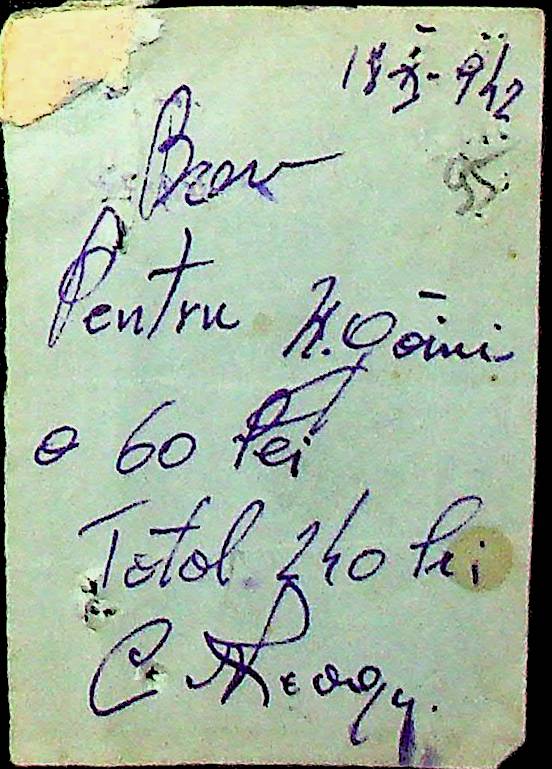 18 X 942
95
Bon
Pentru 4. găini
a 60 lei
Total 240 lei
C